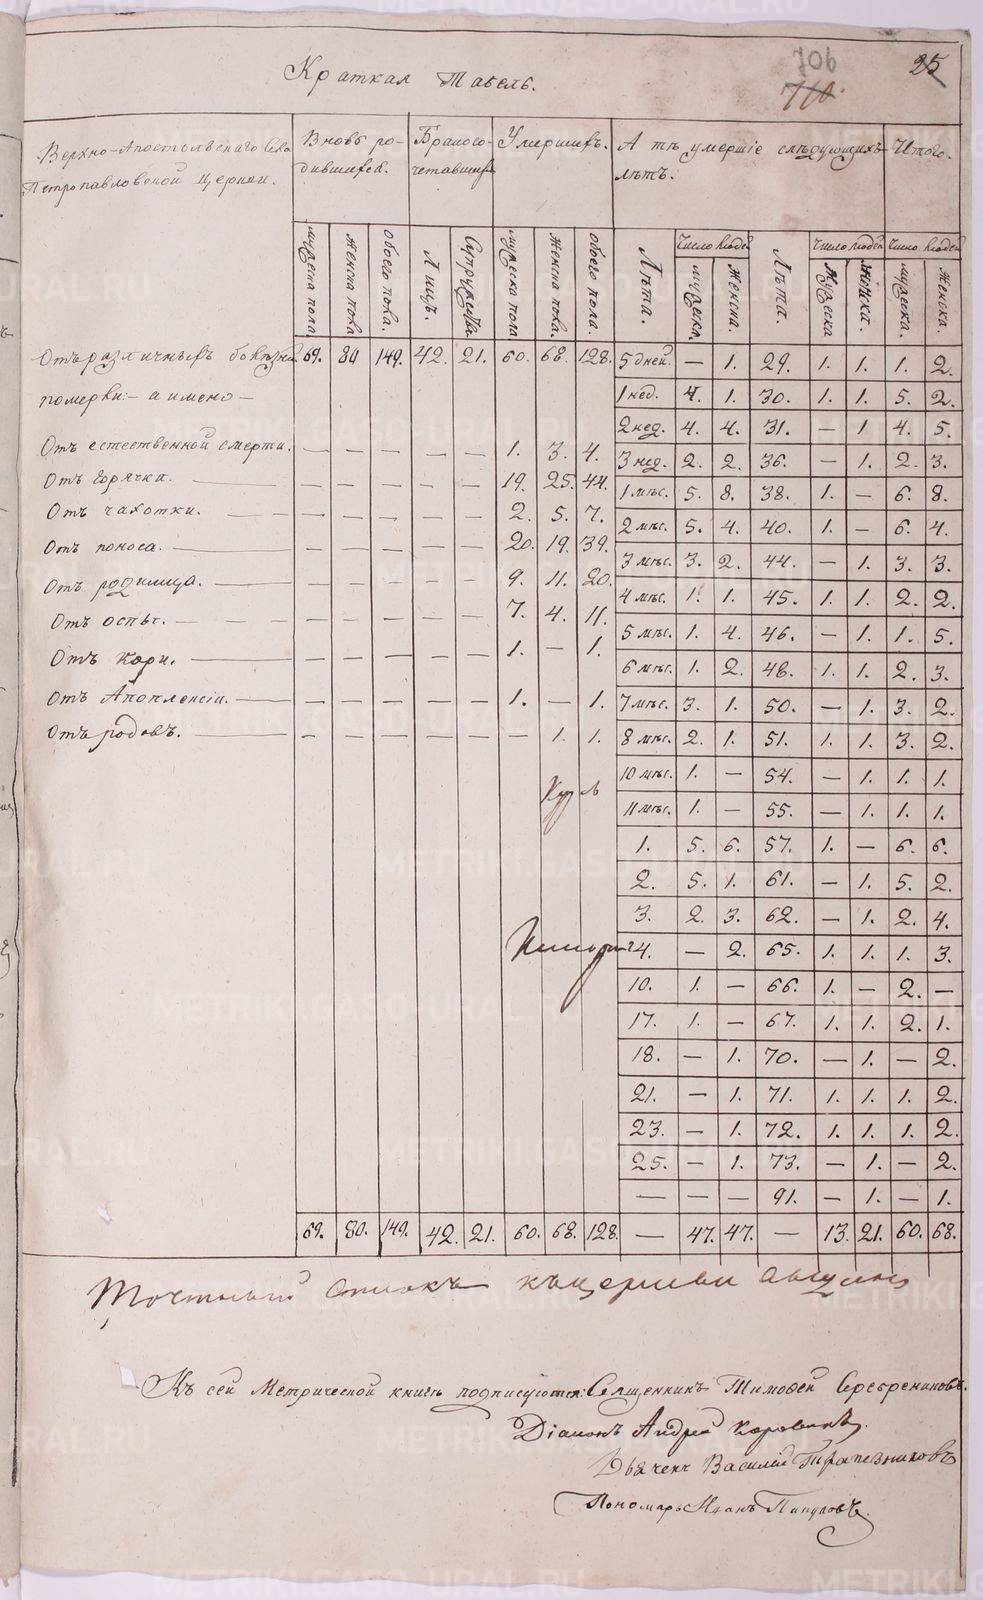 706
25
710.
Краткая Табель.
Верхно-Апостольскаго Села
Петропавловской Церкви.
Вновь ро-
дившихся.
Бракосо-
четавшихся
Умершихъ.
А тѣ умершіе слѣдующихъ
лѣтъ.
Итого.
мужеска пола
женска пола
обоего пола.
Лицъ.
Супружествъ
мужеска пола
женска пола.
обоего пола.
Лѣта.
Число людей
мужеска.
женска.
Лѣта.
Число людей
мужеска
женска.
Число людей
мужеска.
женска.
Отъ различныхъ болѣзней 69. 80 149. 42. 21. 60. 68. 128.
померли:- а имено-
Отъ естественной смерти. — — — — — 1. 3. 4.
Отъ горячки. — — — — — 19. 25. 44.
Отъ чахотки. — — — — — 2. 5. 7.
Отъ поноса. — — — — — 20. 19. 39.
Отъ родимца. — — — — — 9. 11. 20.
Отъ оспы. — — — — — 7. 4. 11.
Отъ кори. — — — — — 1. — 1.
Отъ Апоплексіи. — — — — — 1. — 1.
Отъ родовъ. — — — — — — 1. 1.
5 дней. — 1. 29. 1. 1. 1. 2.
1 нед. 4. 1. 30. 1. 1. 5. 2.
2 нед. 4. 4. 31. — 1 4. 5.
3 нед. 2. 2. 36. — 1. 2. 3.
1 мѣс. 5. 8. 38. 1. — 6. 8.
2 мѣс. 5. 4. 40. 1. — 6. 4.
3 мѣс. 3. 2. 44. — 1. 3. 3.
4 мѣс. 1. 1. 45. 1. 1. 2. 2.
5 мѣс. 1. 4. 46. — 1. 1. 5.
6 мѣс. 1. 2. 48. 1. 1. 2. 3.
7 мѣс. 3. 1. 50. — 1. 3. 2.
8 мѣс. 2. 1. 51. 1. 1. 3. 2.
10 мѣс. 1. — 54. — 1. 1. 1.
11 мѣс. 1. — 55. — 1. 1. 1.
1. 5. 6. 57. 1. — 6. 6.
2. 5. 1. 61. — 1. 5. 2.
3. 2. 3. 62. — 1. 2. 4.
4. — 2. 65. 1. 1. 1. 3.
10. 1. — 66. 1. — 2. —
17. 1. — 67. 1. 1. 2. 1.
18. — 1. 70. — 1. — 2.
21. — 1. 71. 1. 1. 1. 2.
23. — 1. 72. 1. 1. 1. 2.
25. — 1. 73. — 1. — 2.
— — — 91. — 1. — 1.
69. 80. 149. 42. 21. 60. 68. 128. — 47. 47. — 13. 21. 60. 68.
Къ сей Метрической книгѣ подписуются: Священникъ Тимоѳей Серебрениковъ.
Діаконъ Андрей Коровинъ.
Дьячекъ Василей Трапезниковъ
Пономарь Иванъ Пикуловъ
METRIKI.GASO-URAL.RU